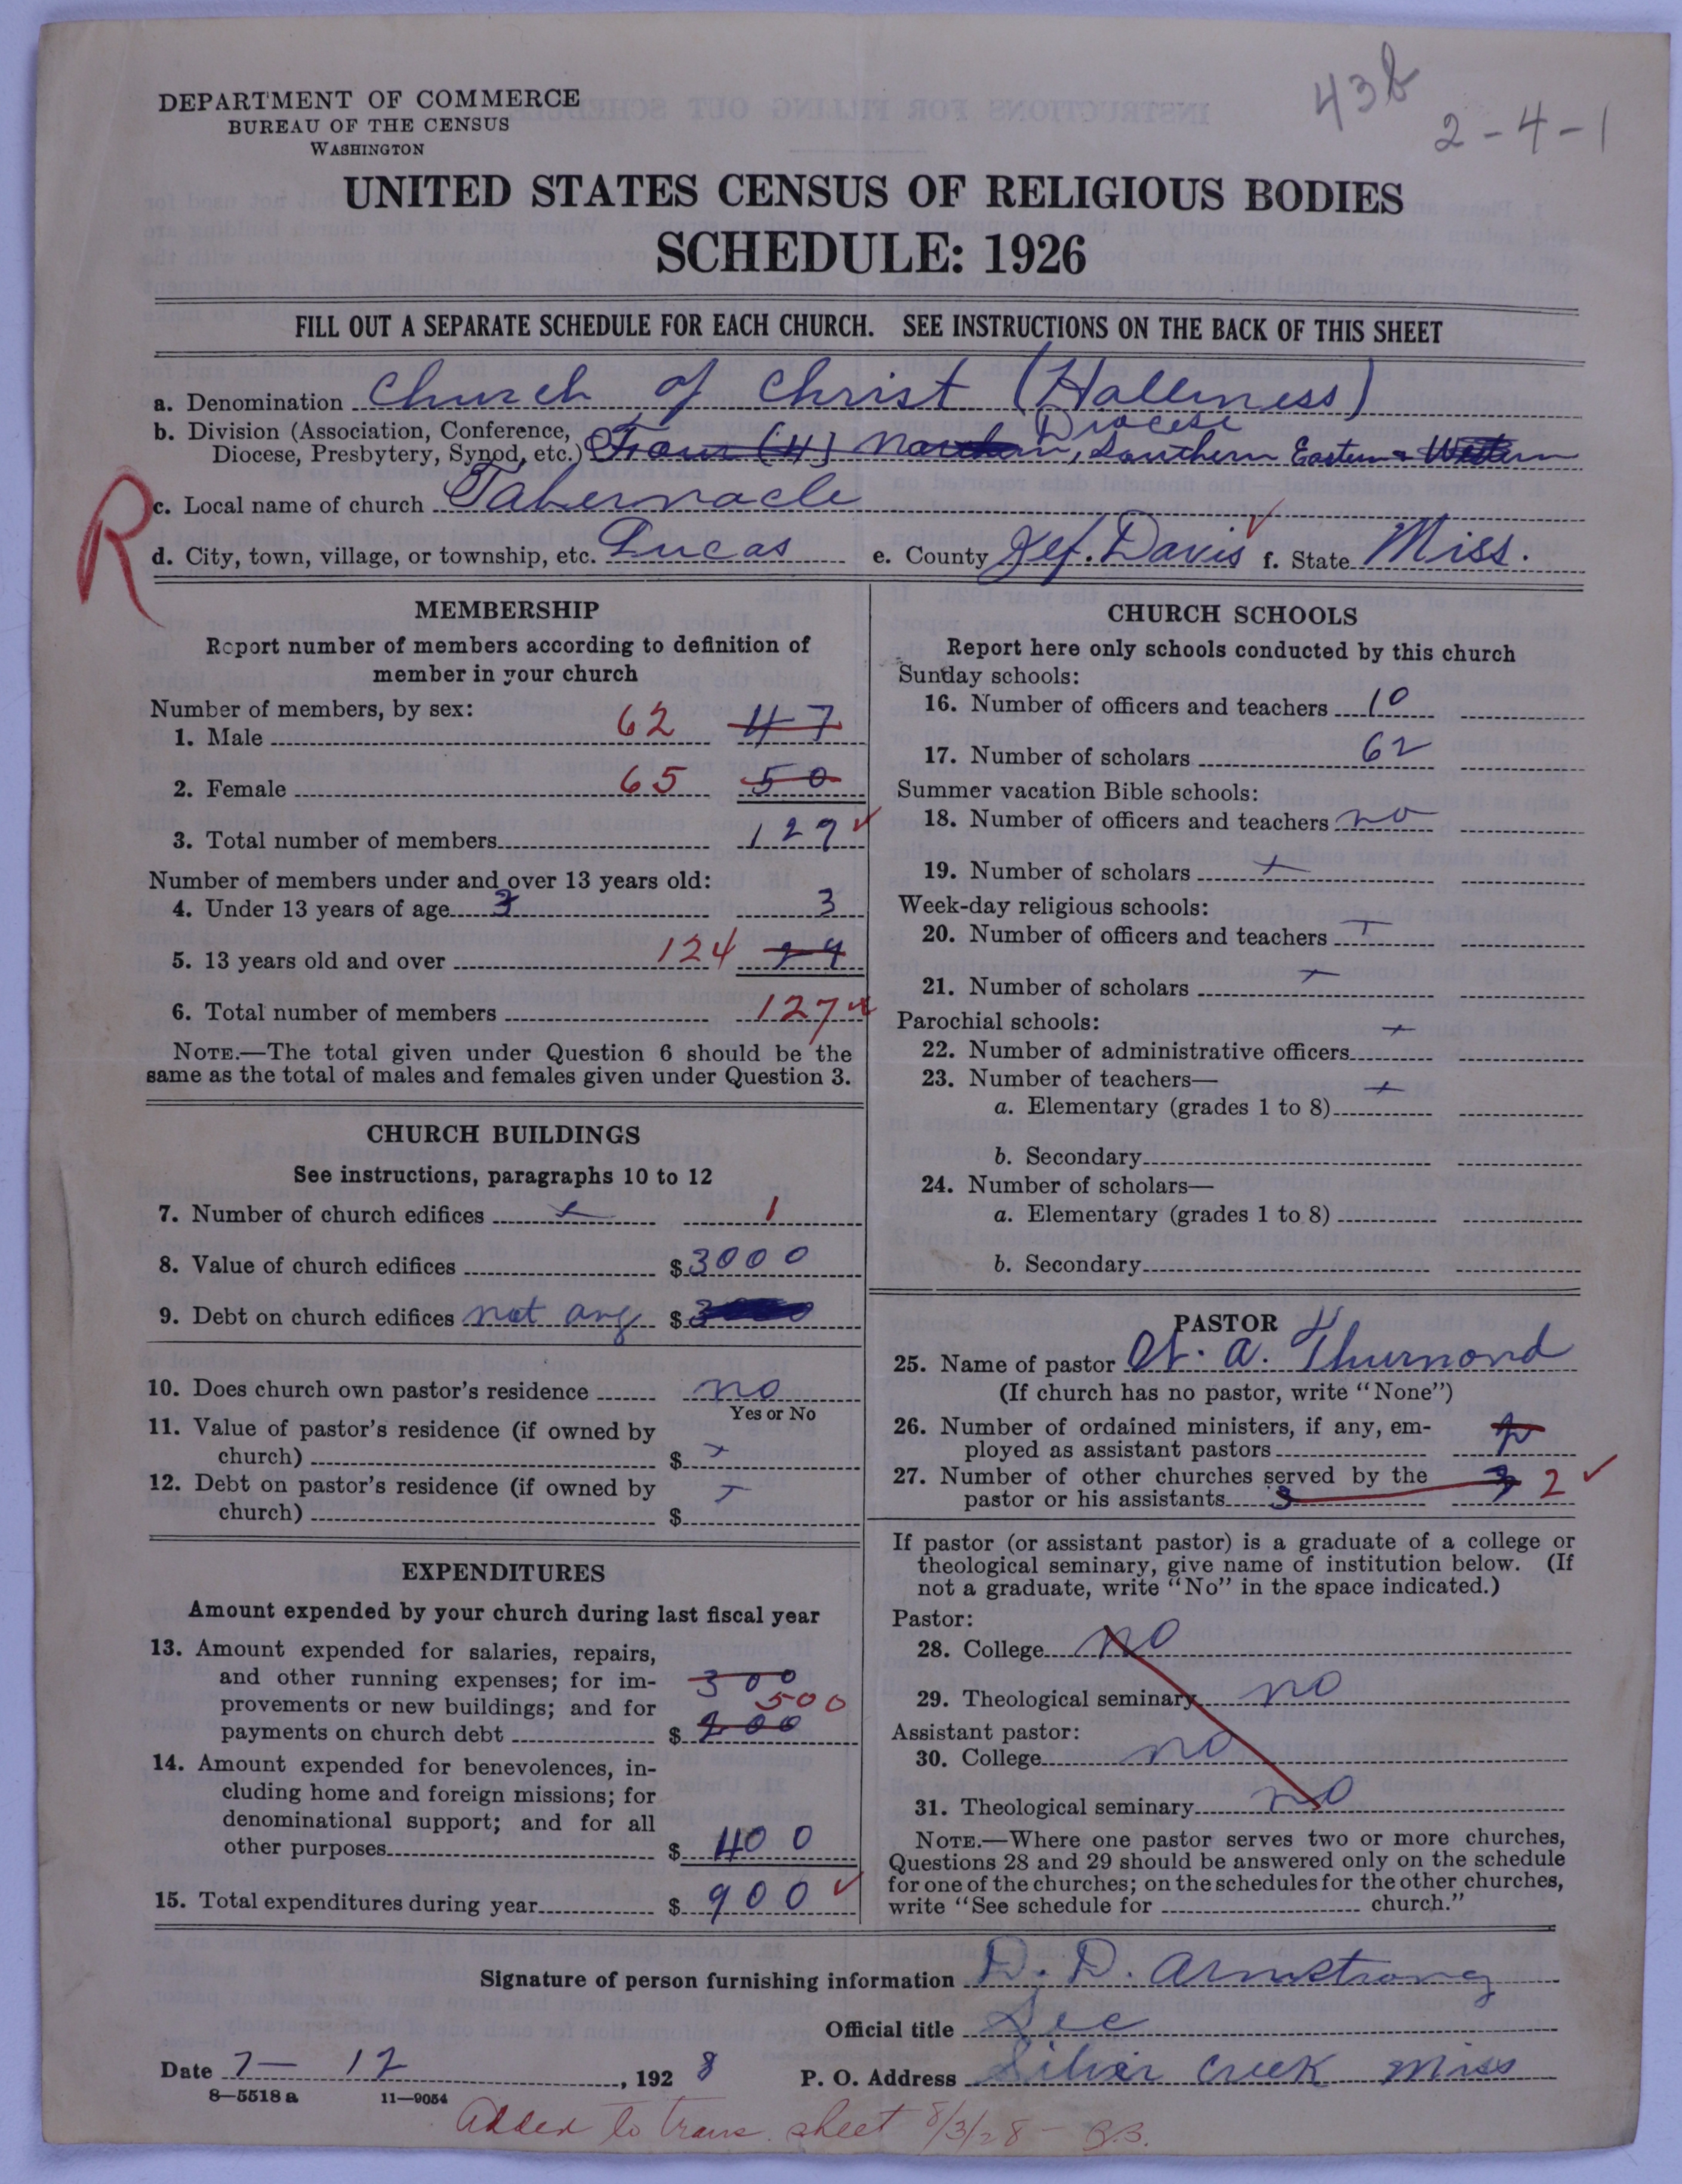 43b
2-4-1
DEPARTMENT OF COMMERCE
BUREAU OF THE CENSUS
WASHINGTON
UNITED STATES CENSUS OF RELIGIOUS BODIES
SCHEDULE: 1926
FILL OUT A SEPARATE SCHEDULE FOR EACH CHURCH. SEE INSTRUCTIONS ON THE BACK OF THIS SHEET
a. Denomination Church of Christ (Holliness)
b. Division (Association, Conference, Diocese
Diocese, Presbytery, Synod, etc.) Four (4) Northern, Southern Eastern & Western
c. Local name of church Tabernacle
R
d. City, town, village, or township, etc. Lucas e. County Jef. Davis f. State Miss.
MEMBERSHIP
Report number of members according to definition of
member in your church
Number of members, by sex:
1. Male 62 47
2. Female 65 50
3. Total number of members 127
Number of members under and over 13 years old:
4. Under 13 years of age 3 3
5. 13 years old and over 124
6. Total number of members 127
NOTE.—The total given under Question 6 should be the
same as the total of males and females given under Question 3.
CHURCH BUILDINGS
See instructions, paragraphs 10 to 12
7. Number of church edifices 1
8. Value of church edifices $ 3000
9. Debt on church edifices not any $
10. Does church own pastor's residence no
Yes or No
11. Value of pastor's residence (if owned by
church) $
12. Debt on pastor's residence (if owned by
church) $
EXPENDITURES
Amount expended by your church during last fiscal year
13. Amount expended for salaries, repairs,
and other running expenses; for im- 300
provements or new buildings; and for 500
payments on church debt $ 200
14. Amount expended for benevolences, in-
cluding home and foreign missions; for
denominational support; and for all
other purposes $ 400
15. Total expenditures during year $ 900
CHURCH SCHOOLS
Report here only schools conducted by this church
Sunday schools:
16. Number of officers and teachers 10
17. Number of scholars 62
Summer vacation Bible schools:
18. Number of officers and teachers no
19. Number of scholars
Week-day religious schools:
20. Number of officers and teachers
21. Number of scholars
Parochial schools:
22. Number of administrative officers
23. Number of teachers—
a. Elementary (grades 1 to 8)
b. Secondary
24. Number of scholars—
a. Elementary (grades 1 to 8)
b. Secondary
PASTOR
25. Name of pastor A. Thurmond
(If church has no pastor, write "None")
26. Number of ordained ministers, if any, em-
ployed as assistant pastors
27. Number of other churches served by the 3 2
pastor or his assistants 3
If pastor (or assistant pastor) is a graduate of a college or
theological seminary, give name of institution below. (If
not a graduate, write "No" in the space indicated.)
Pastor:
28. College no
29. Theological seminary no
Assistant pastor:
30. College no
31. Theological seminary no
NOTE.—Where one pastor serves two or more churches,
Questions 28 and 29 should be answered only on the schedule
for one of the churches; on the schedules for the other churches,
write "See schedule for church."
Signature of person furnishing information D. D. Armstrong
Official title Sec
Date 7-12, 1928 P. O. Address Silver Creek Miss
8—5518 a 11—9054
Added to trans. sheet 8/3/28 -